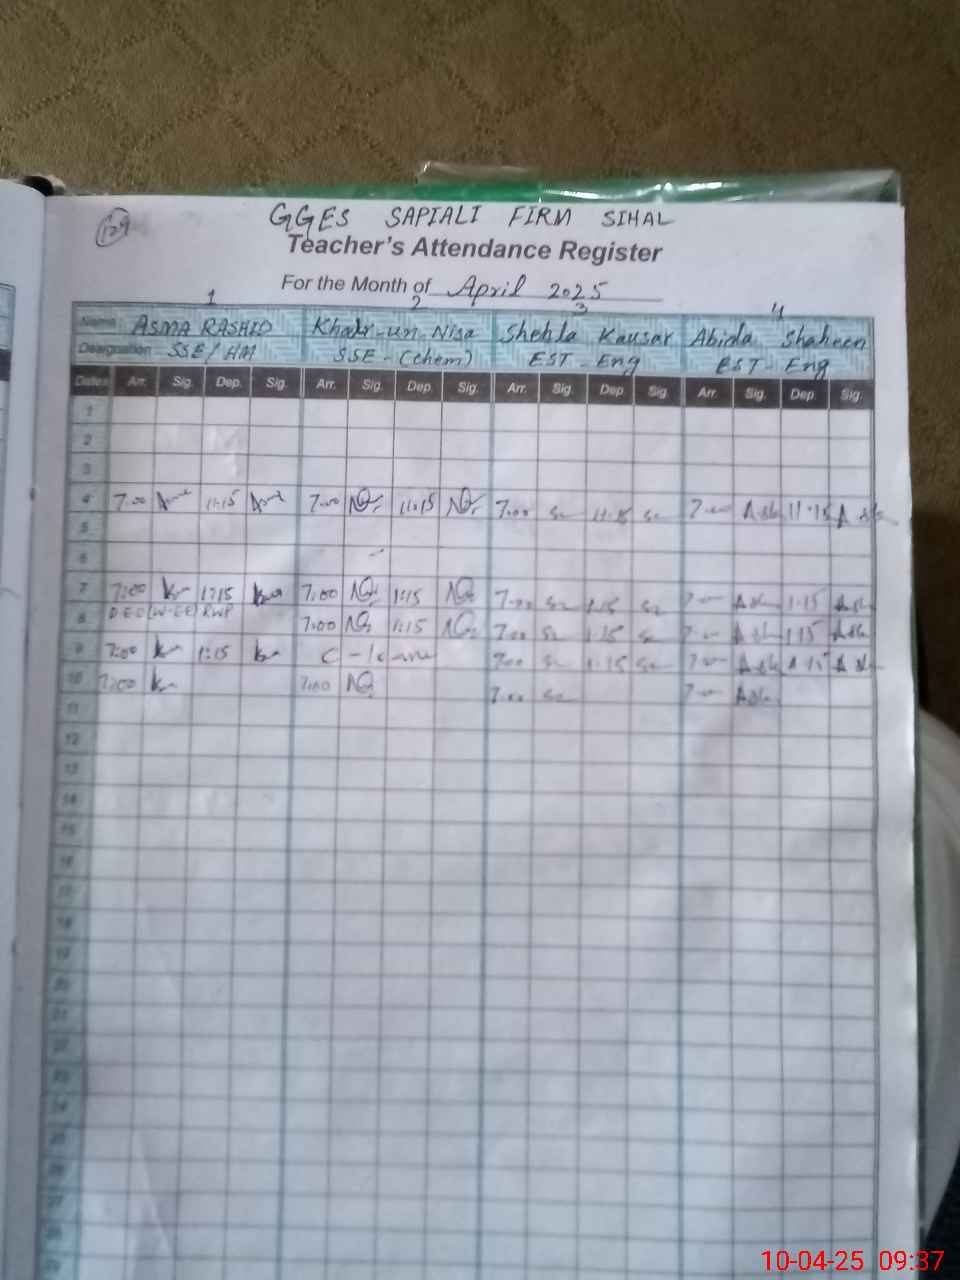 129
GGES SAPIALI FIRM SIHAL
Teacher's Attendance Register
For the Month of April 2025
1 2 3 4
Name ASMA RASHID Khair-un-Nisa Shehla Kausar Abida Shaheen
Designation SSE/HM SSE-(chem) EST-Eng EST-Eng
Dates Arr. Sig. Dep. Sig. Arr. Sig. Dep. Sig. Arr. Sig. Dep. Sig. Arr. Sig. Dep. Sig.
1
2
3
4 7:00 11:15 7:00 11:15 7:00 11:15 7:00 11:15
5
6
7 7:00 1:15 7:00 1:15 7:00 1:15 7:00 1:15
8 DEO(W-EE) RWP 7:00 1:15 7:00 1:15 7:00 1:15
9 7:00 1:15 C-leave 7:00 1:15 7:00 1:15
10 7:00 7:00 7:00 7:00
11
12
13
14
15
16
17
18
19
20
21
22
23
24
25
26
27
28
29
10-04-25 09:37